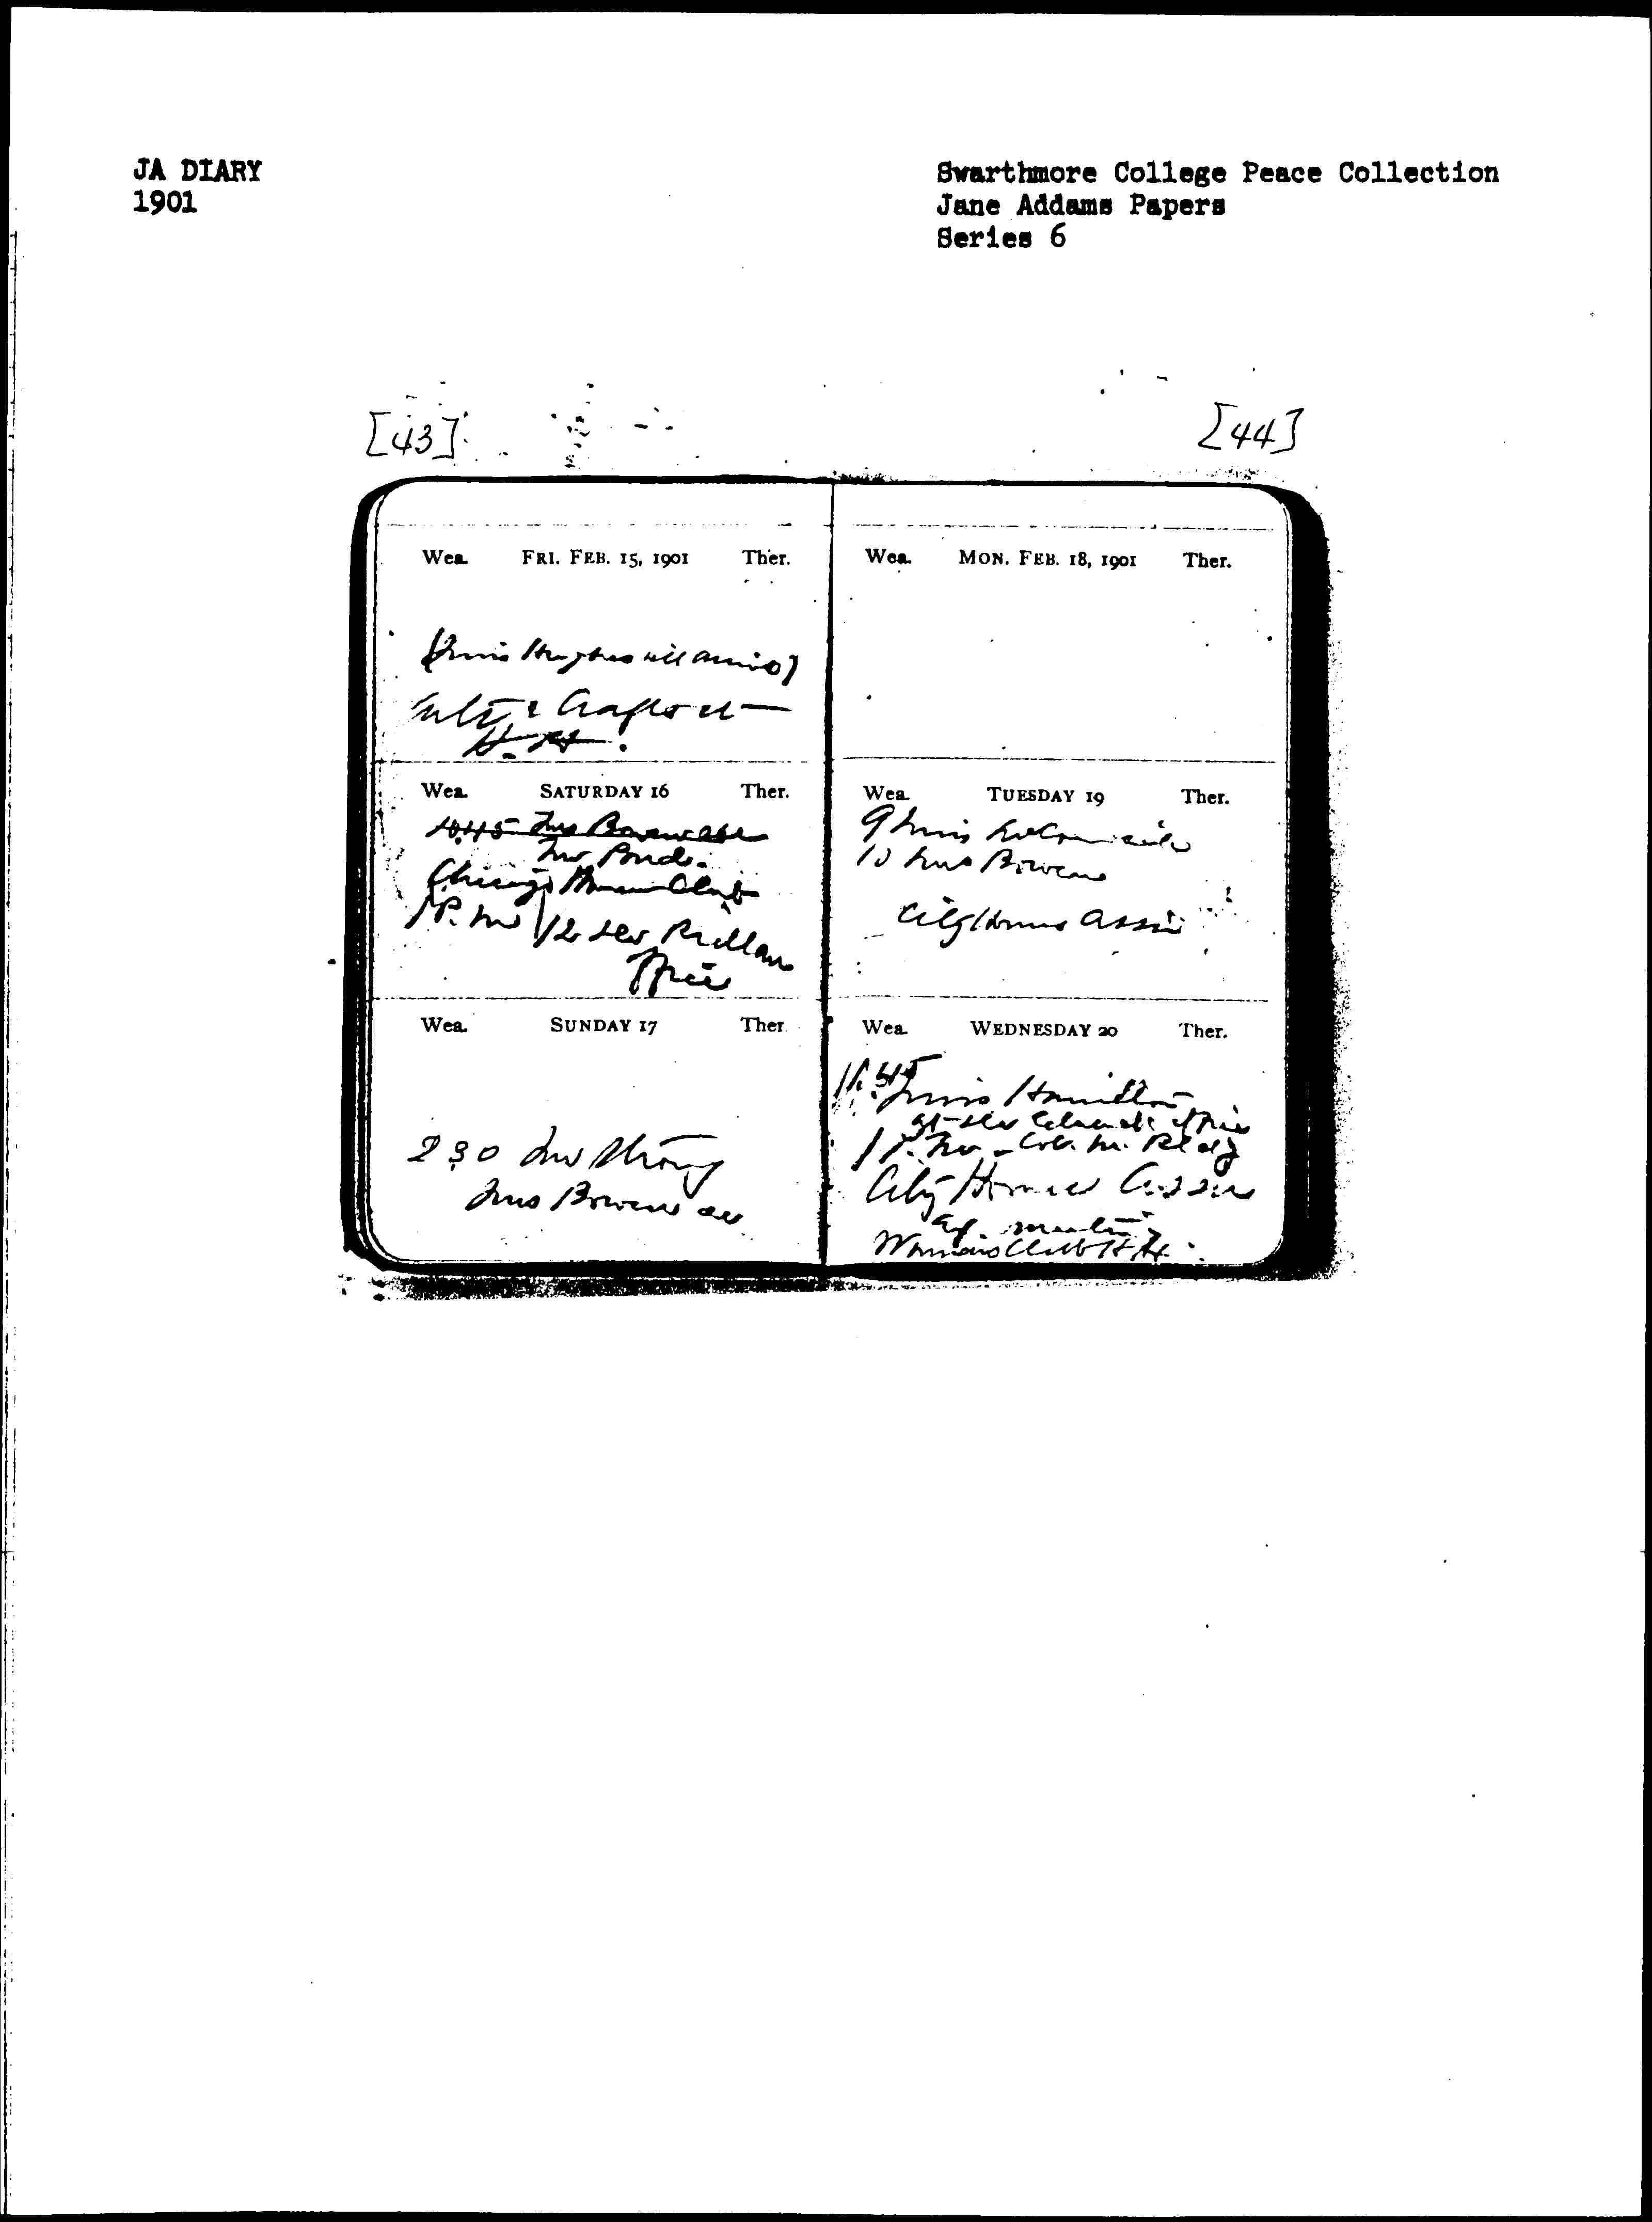 JA DIARY
1901
Swarthmore College Peace Collection
Jane Addams Papers
Series 6
[43]
[44]
Wea. FRI. FEB. 15, 1901 Ther.
(Miss Hughes will arrive)
& Crafts at
H. H.
Wea. SATURDAY 16 Ther.
10.45 Mrs
Mr Pond
Chicago Woman Club
1 P. M 12
Office
Wea. SUNDAY 17 Ther.
2 30 Mr Strong
Mrs Bowen
Wea. MON. FEB. 18, 1901 Ther.
Wea. TUESDAY 19 Ther.
9 Miss
10 Mrs Bowen
City Homes Assn
Wea. WEDNESDAY 20 Ther.
11.45
Miss Hamilton
at office
1 P. M. - Col. M. Bldg
City Homes Assn
meeting
Woman's Club H. H.